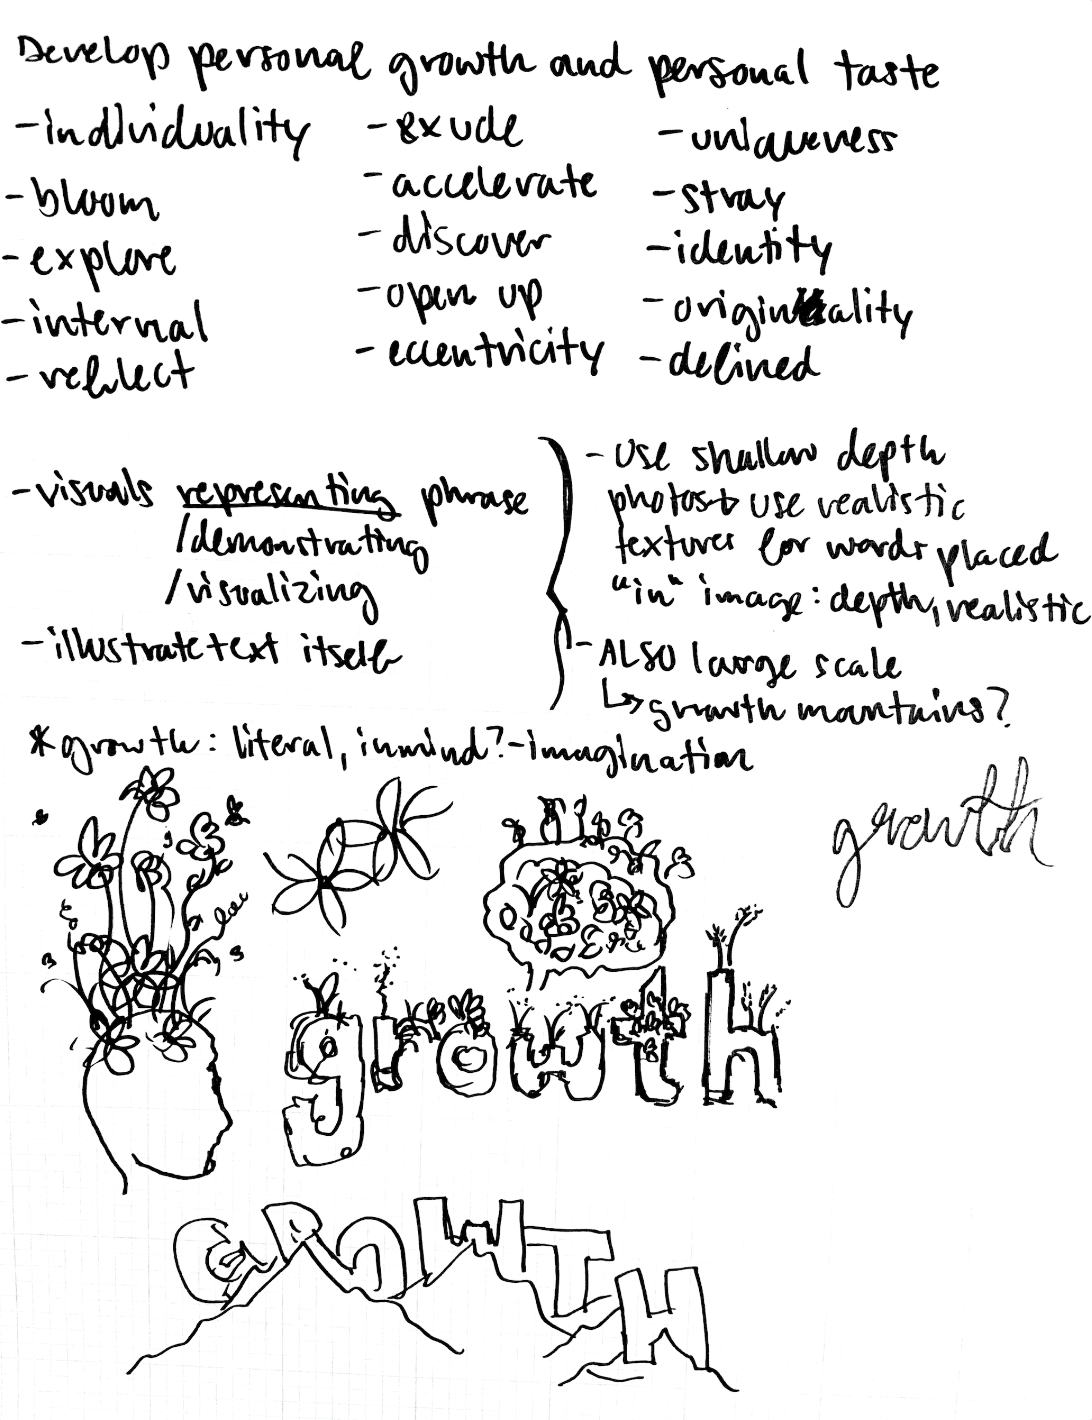 Develop personal growth and personal taste
-individuality
-bloom
-explore
-internal
-reflect
-exude
-accelerate
-discover
-open up
-eccentricity
-uniqueness
-stray
-identity
-originality
-defined
-visuals representing phrase
/demonstrating
/visualizing
-illustrate text itself
-use shallow depth
photos + use realistic
textures for words placed
"in" image: depth, realistic
-ALSO large scale
↳ growth mountains?
*growth: literal, in mind?-imagination
growth
growth
GROWTH